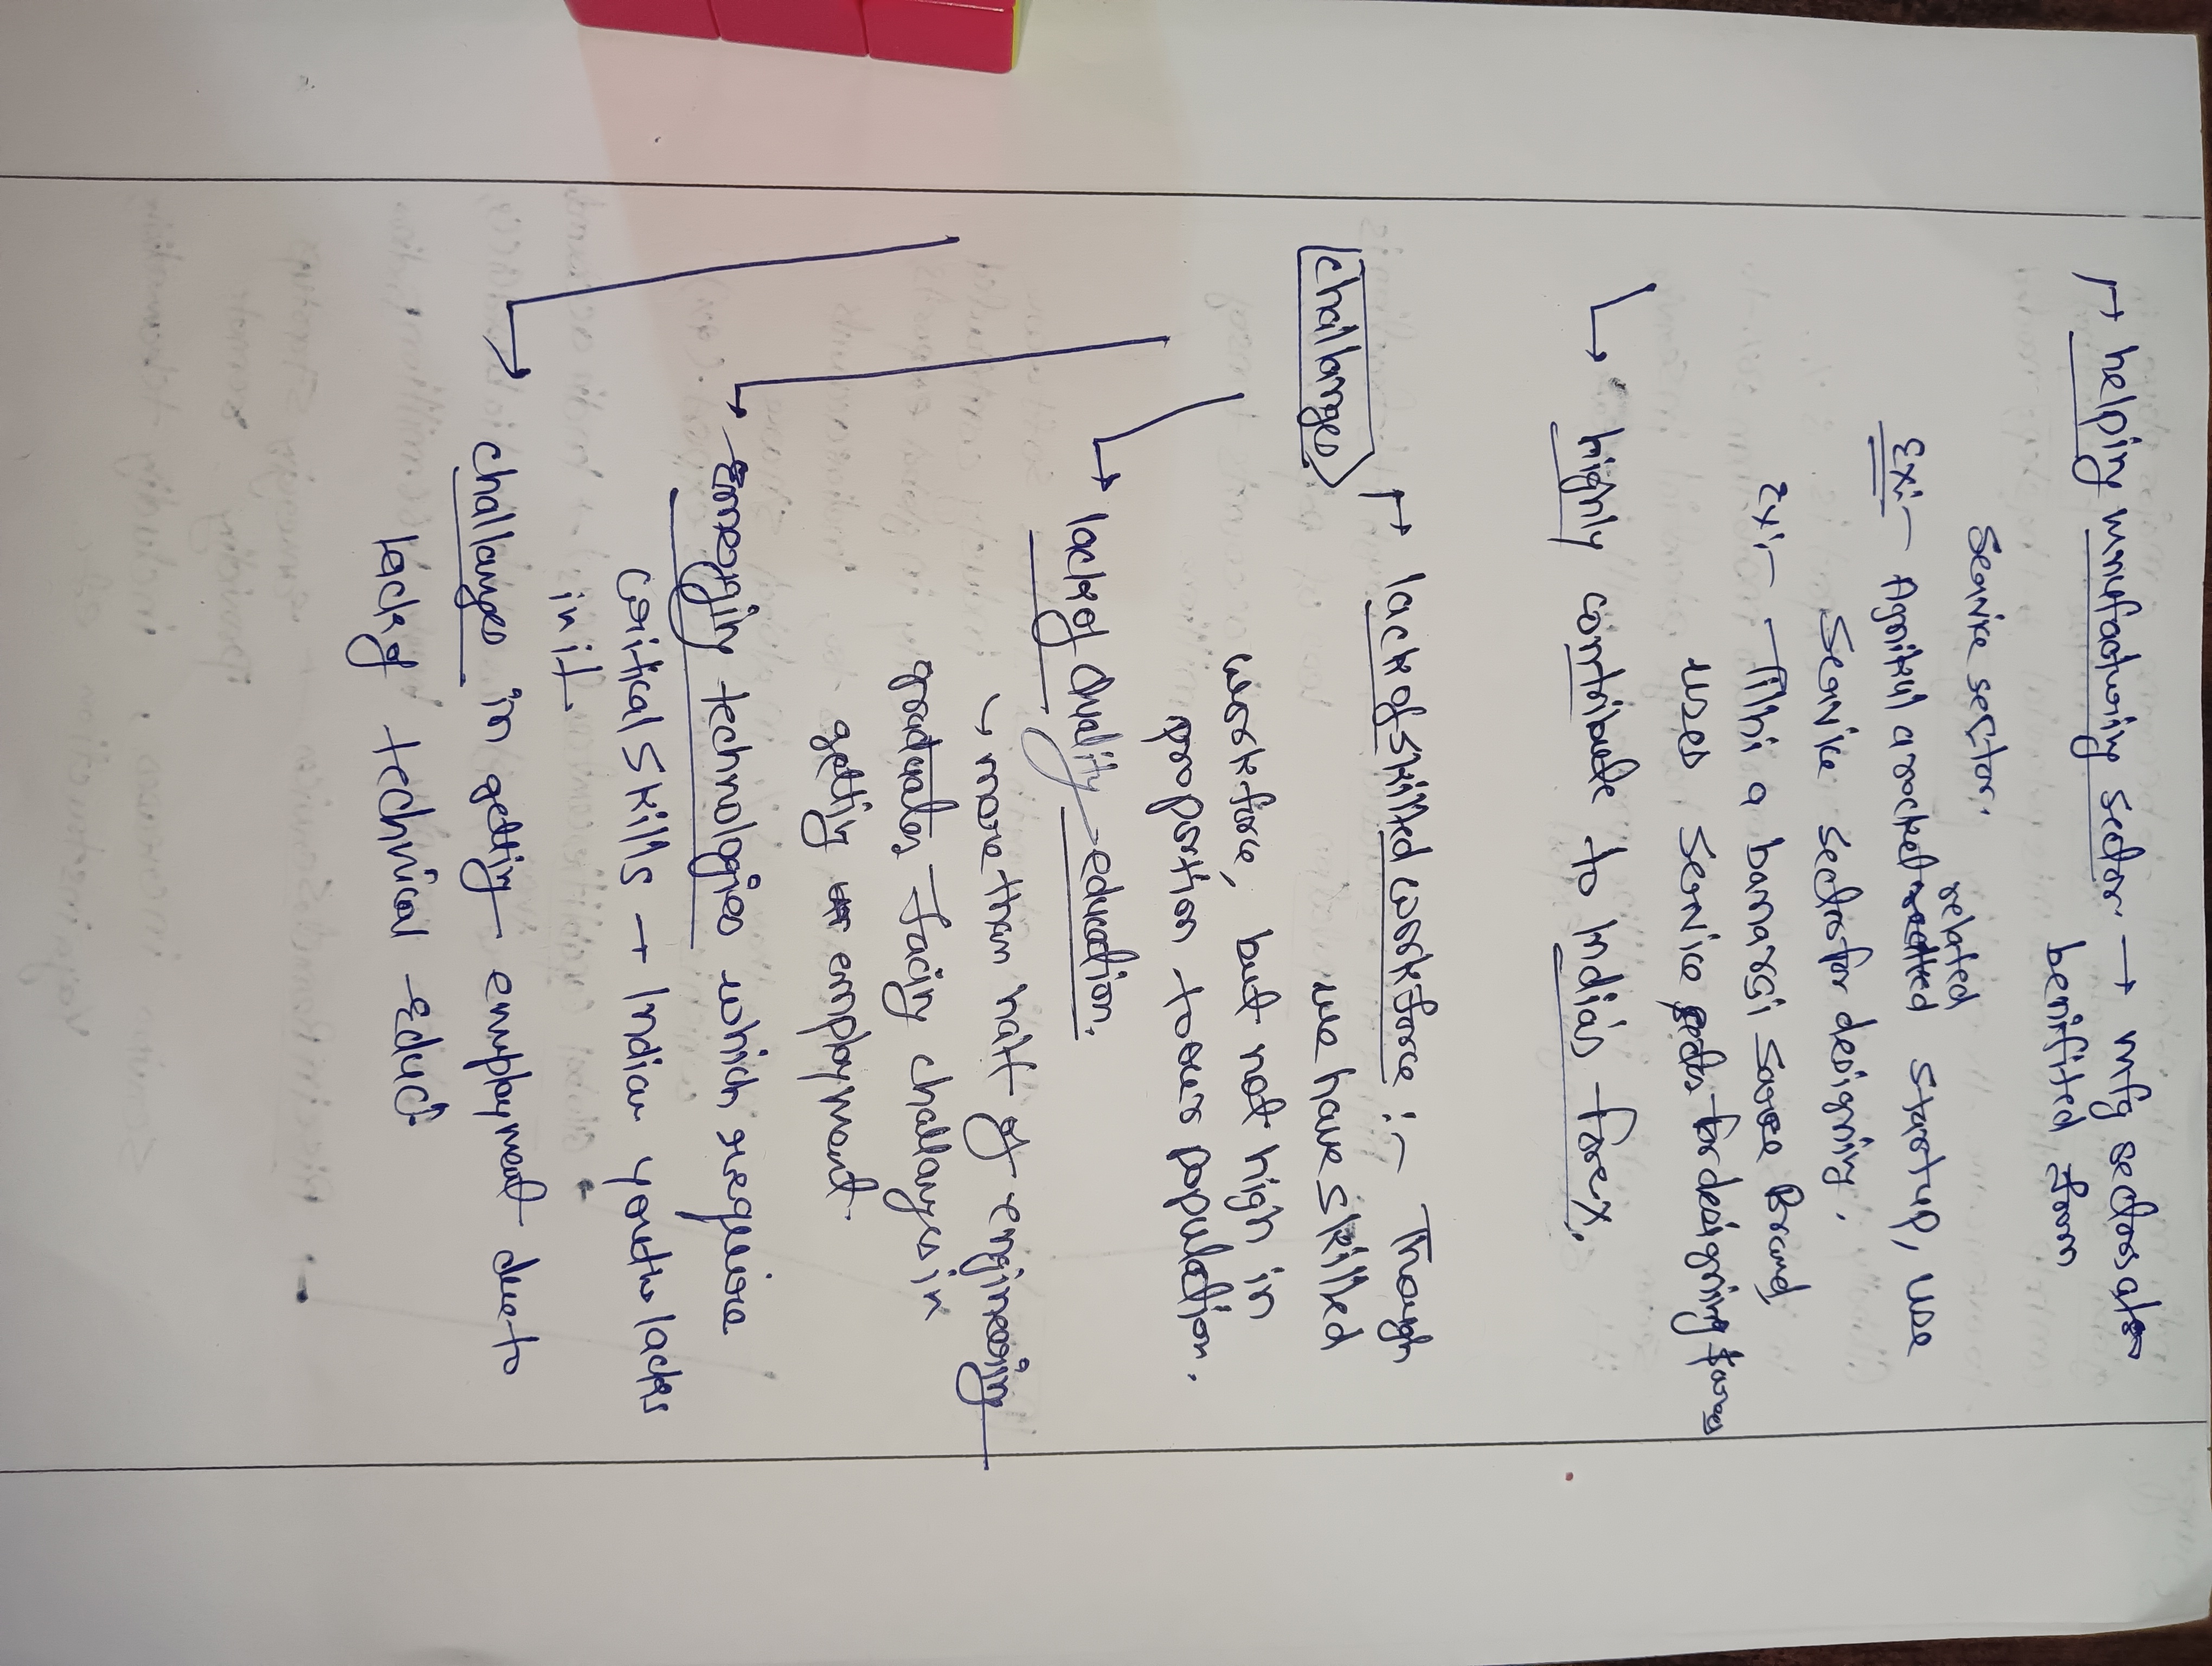 → helping mnufacturing sector → mfg sector also
benifited from
Service sector.
Ex:- Agnikul a rocket related startup, use
Service sector for designing.
Ex:- Tilhi a banarsi saree Brand,
uses service for designing
↳ highly contribute to India's forex.
Challanges
→ lack of skilled workforce :- Though
we have skilled
workforce, but not high in
proportion to our population.
↳ lack of Quality education.
↳ more than half of engineering
graduates facing challanges in
getting employment.
→ Emerging technologies which require
critical skills → Indian youths lacks
in it.
→ challanges in getting employment due to
lack of technical educn